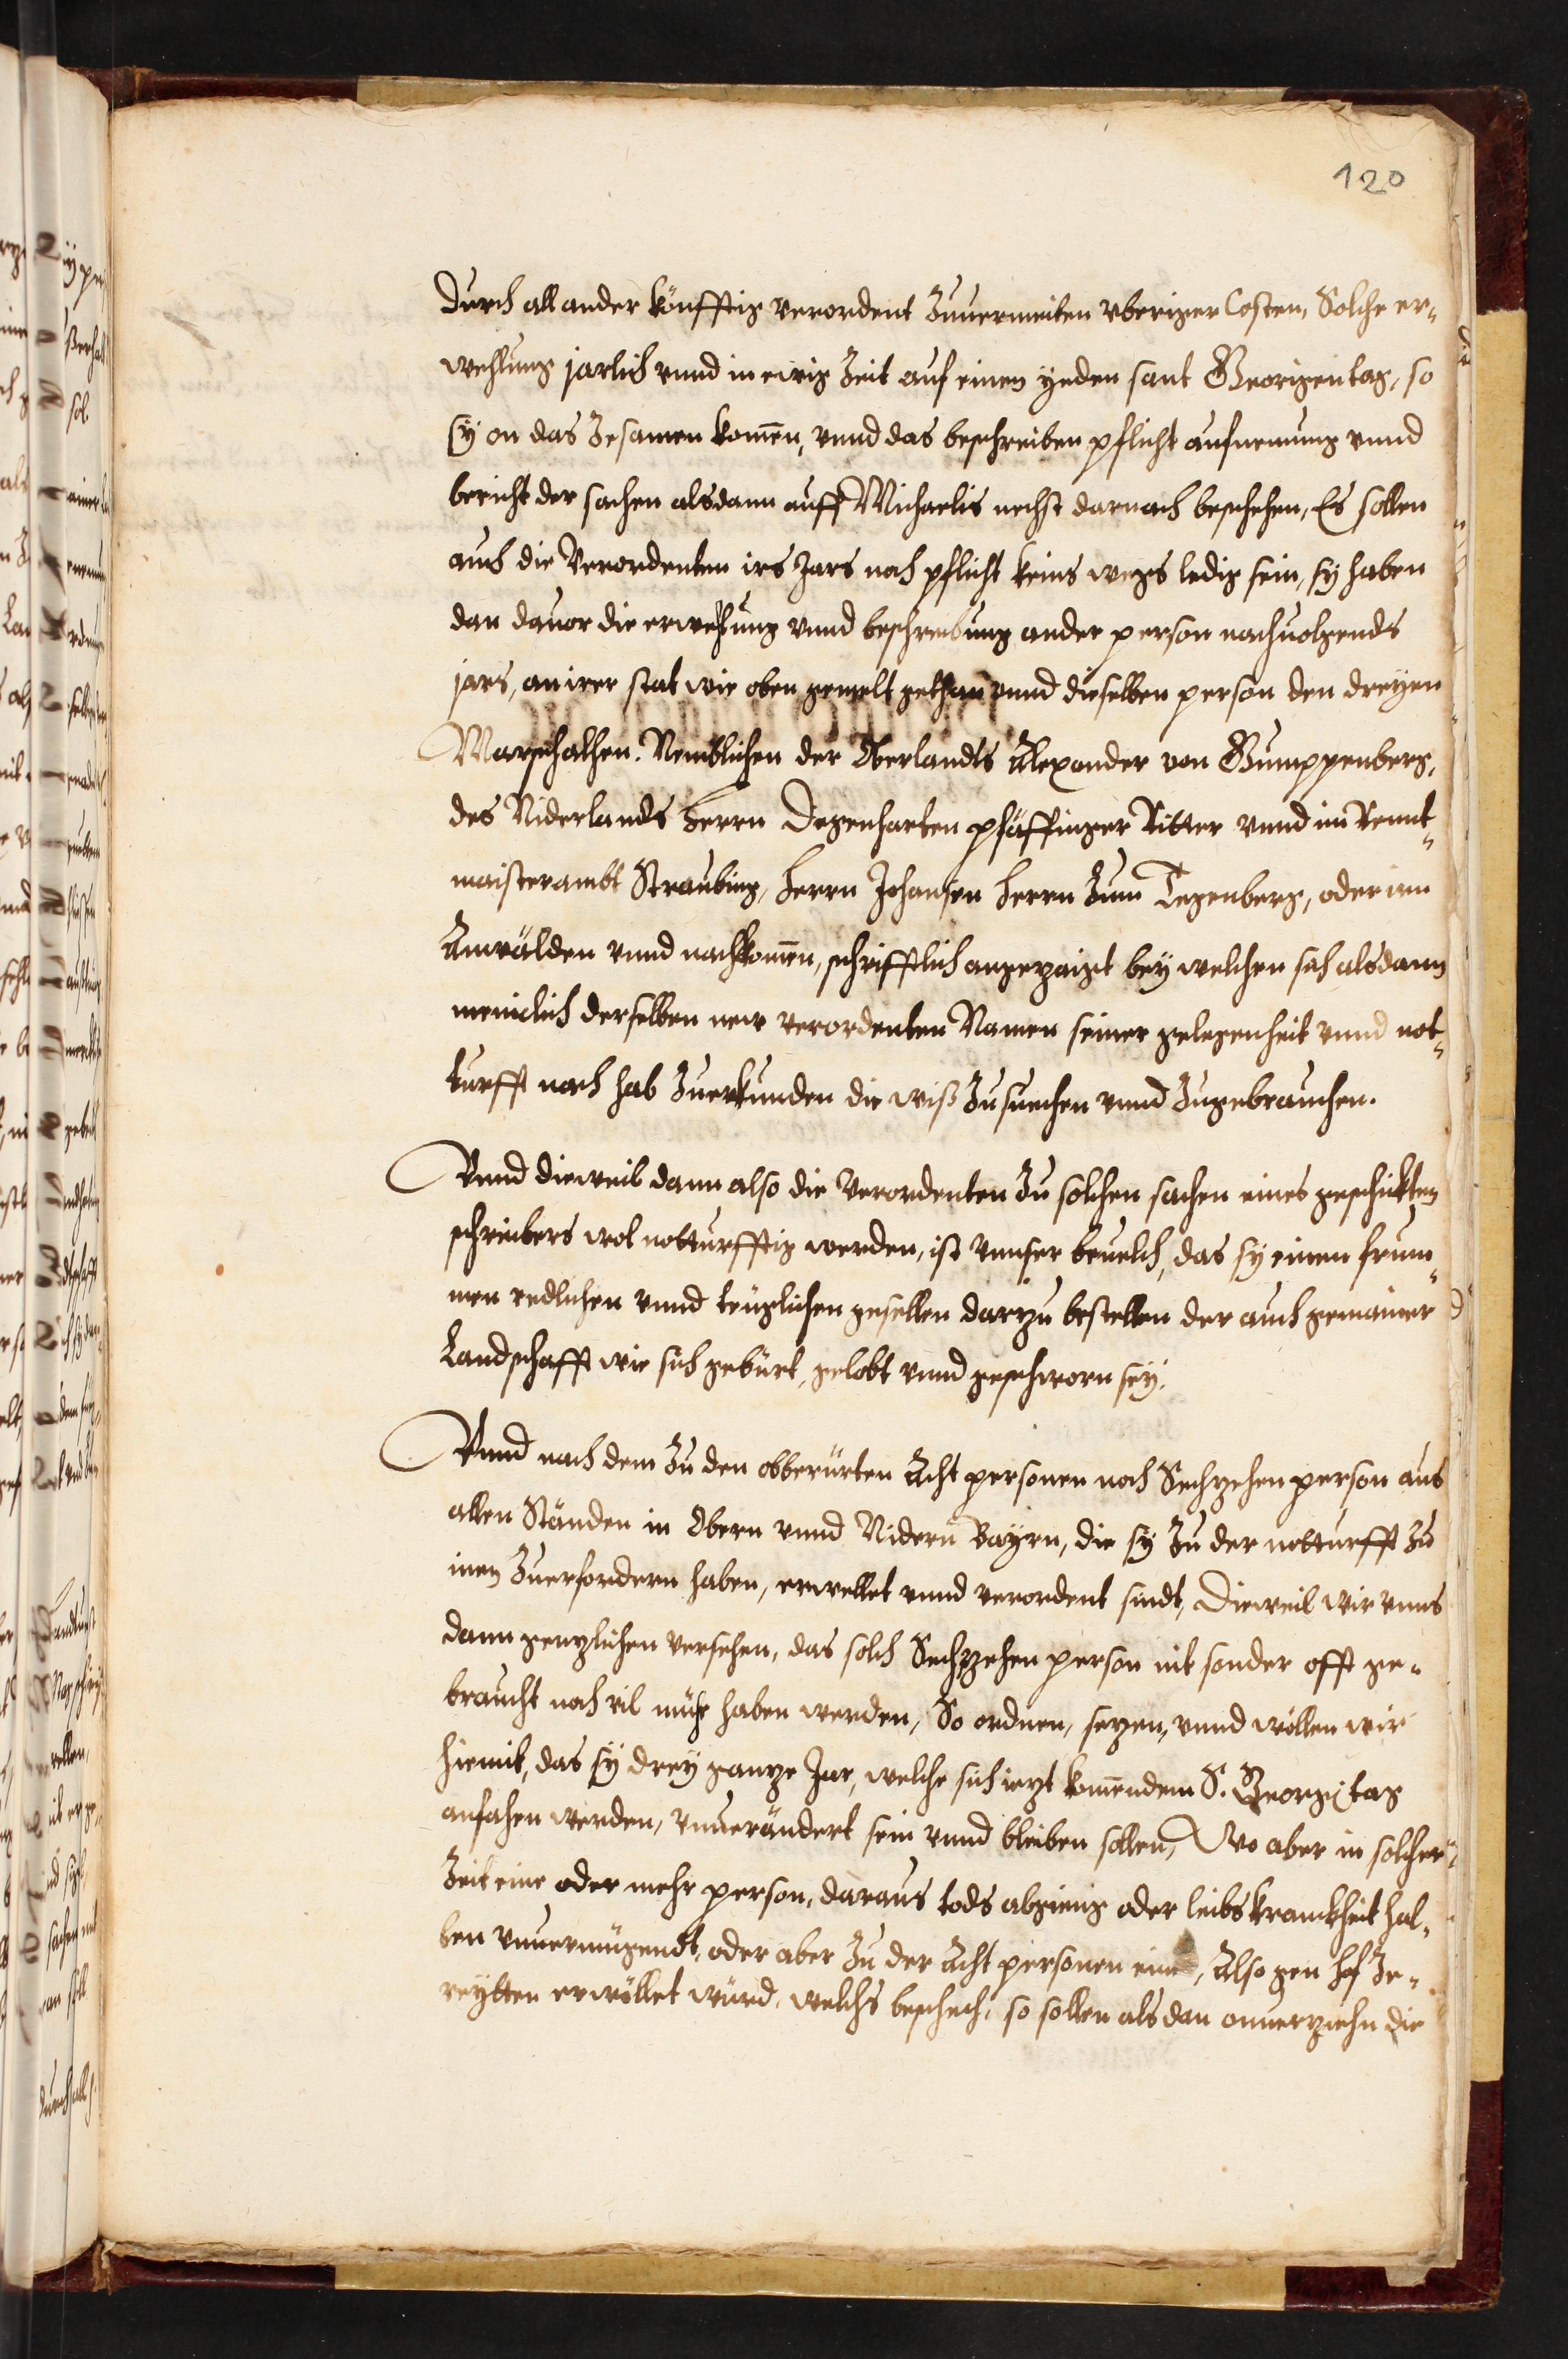 120
durch all ander könfftig verordent zuuermeiten vberiger Costen, Solche er-
wehlung jarlich vnnd in ewig Zeit auf einen yeden sant Georigen tag, so
sy on das zesamen komen, vnnd das beschreiben pflicht aufnemung vnnd
bericht der sachen alsdann auff Michaelis nechst darnach beschehen, Es sollen
auch die Verordenten irs Jars noch pflicht keins wegs ledig sein, sy haben
dan dauor die erwehlung vnnd beschreibung ander person nachuolgends
jars, an irer stat wie oben gemelt gethan vnnd dieselben person den dreyen
Marschalhen. Nemblichen der Oberlandts Alexander von Gumppenberg,
des Niderlands Herrn Degenharten pfäffinger Ritter vnnd im Rennt-
maisterambt Straubing, Herrn Johansen Herrn zum Degenberg, oder iren
Anwälden vnnd nachkomen, schrifftlich angezaigt bey welchen sich alsdann
meniclich derselben new verordenten Namen seiner gelegenheit vnnd not-
turfft nach hab zuerkunden die wiß zusuechen vnnd zugebrauchen.
Vnnd dieweil dann also die Verordenten zu solchen sachen eines geschickten
schreibers wol notturfftig werden, ist vnnser beuelch, das sy einen frum-
men redlichen vnnd teuglichen gesellen darzu bestellen der auch gemainer
Landschafft wie sich gebürt, gelobt vnnd geschworn sey.
Vnnd nach dem zu den obberürten Acht personen noch Sechzehen person aus
allen Ständen in Obern vnnd Nidern Bayrn, die sy zu der notturfft zu
inen zuerfordern haben, erwellet vnnd verordent sindt, Dieweil wir vnns
dann genzlichen versehen, das solch Sechzehen person nit sonder offt ge-
braucht noch vil mühe haben werden, So ordnen, sezen, vnnd wöllen wir
hiemit, das sy drey ganze Jar, welche sich iezt komendem S. Georgij tag
anfahen werden, vnuerändert sein vnnd bleiben sollen, Wo aber in solcher
Zeit eine oder mehr person, daraus tods abgieng oder leibs kranckheit hal-
ben vnuermügendt, oder aber zu der Acht personen eine, Also gen hof ze-
reytten erwöllet würd, welchs beschech, so sollen als dan onuerziehn die